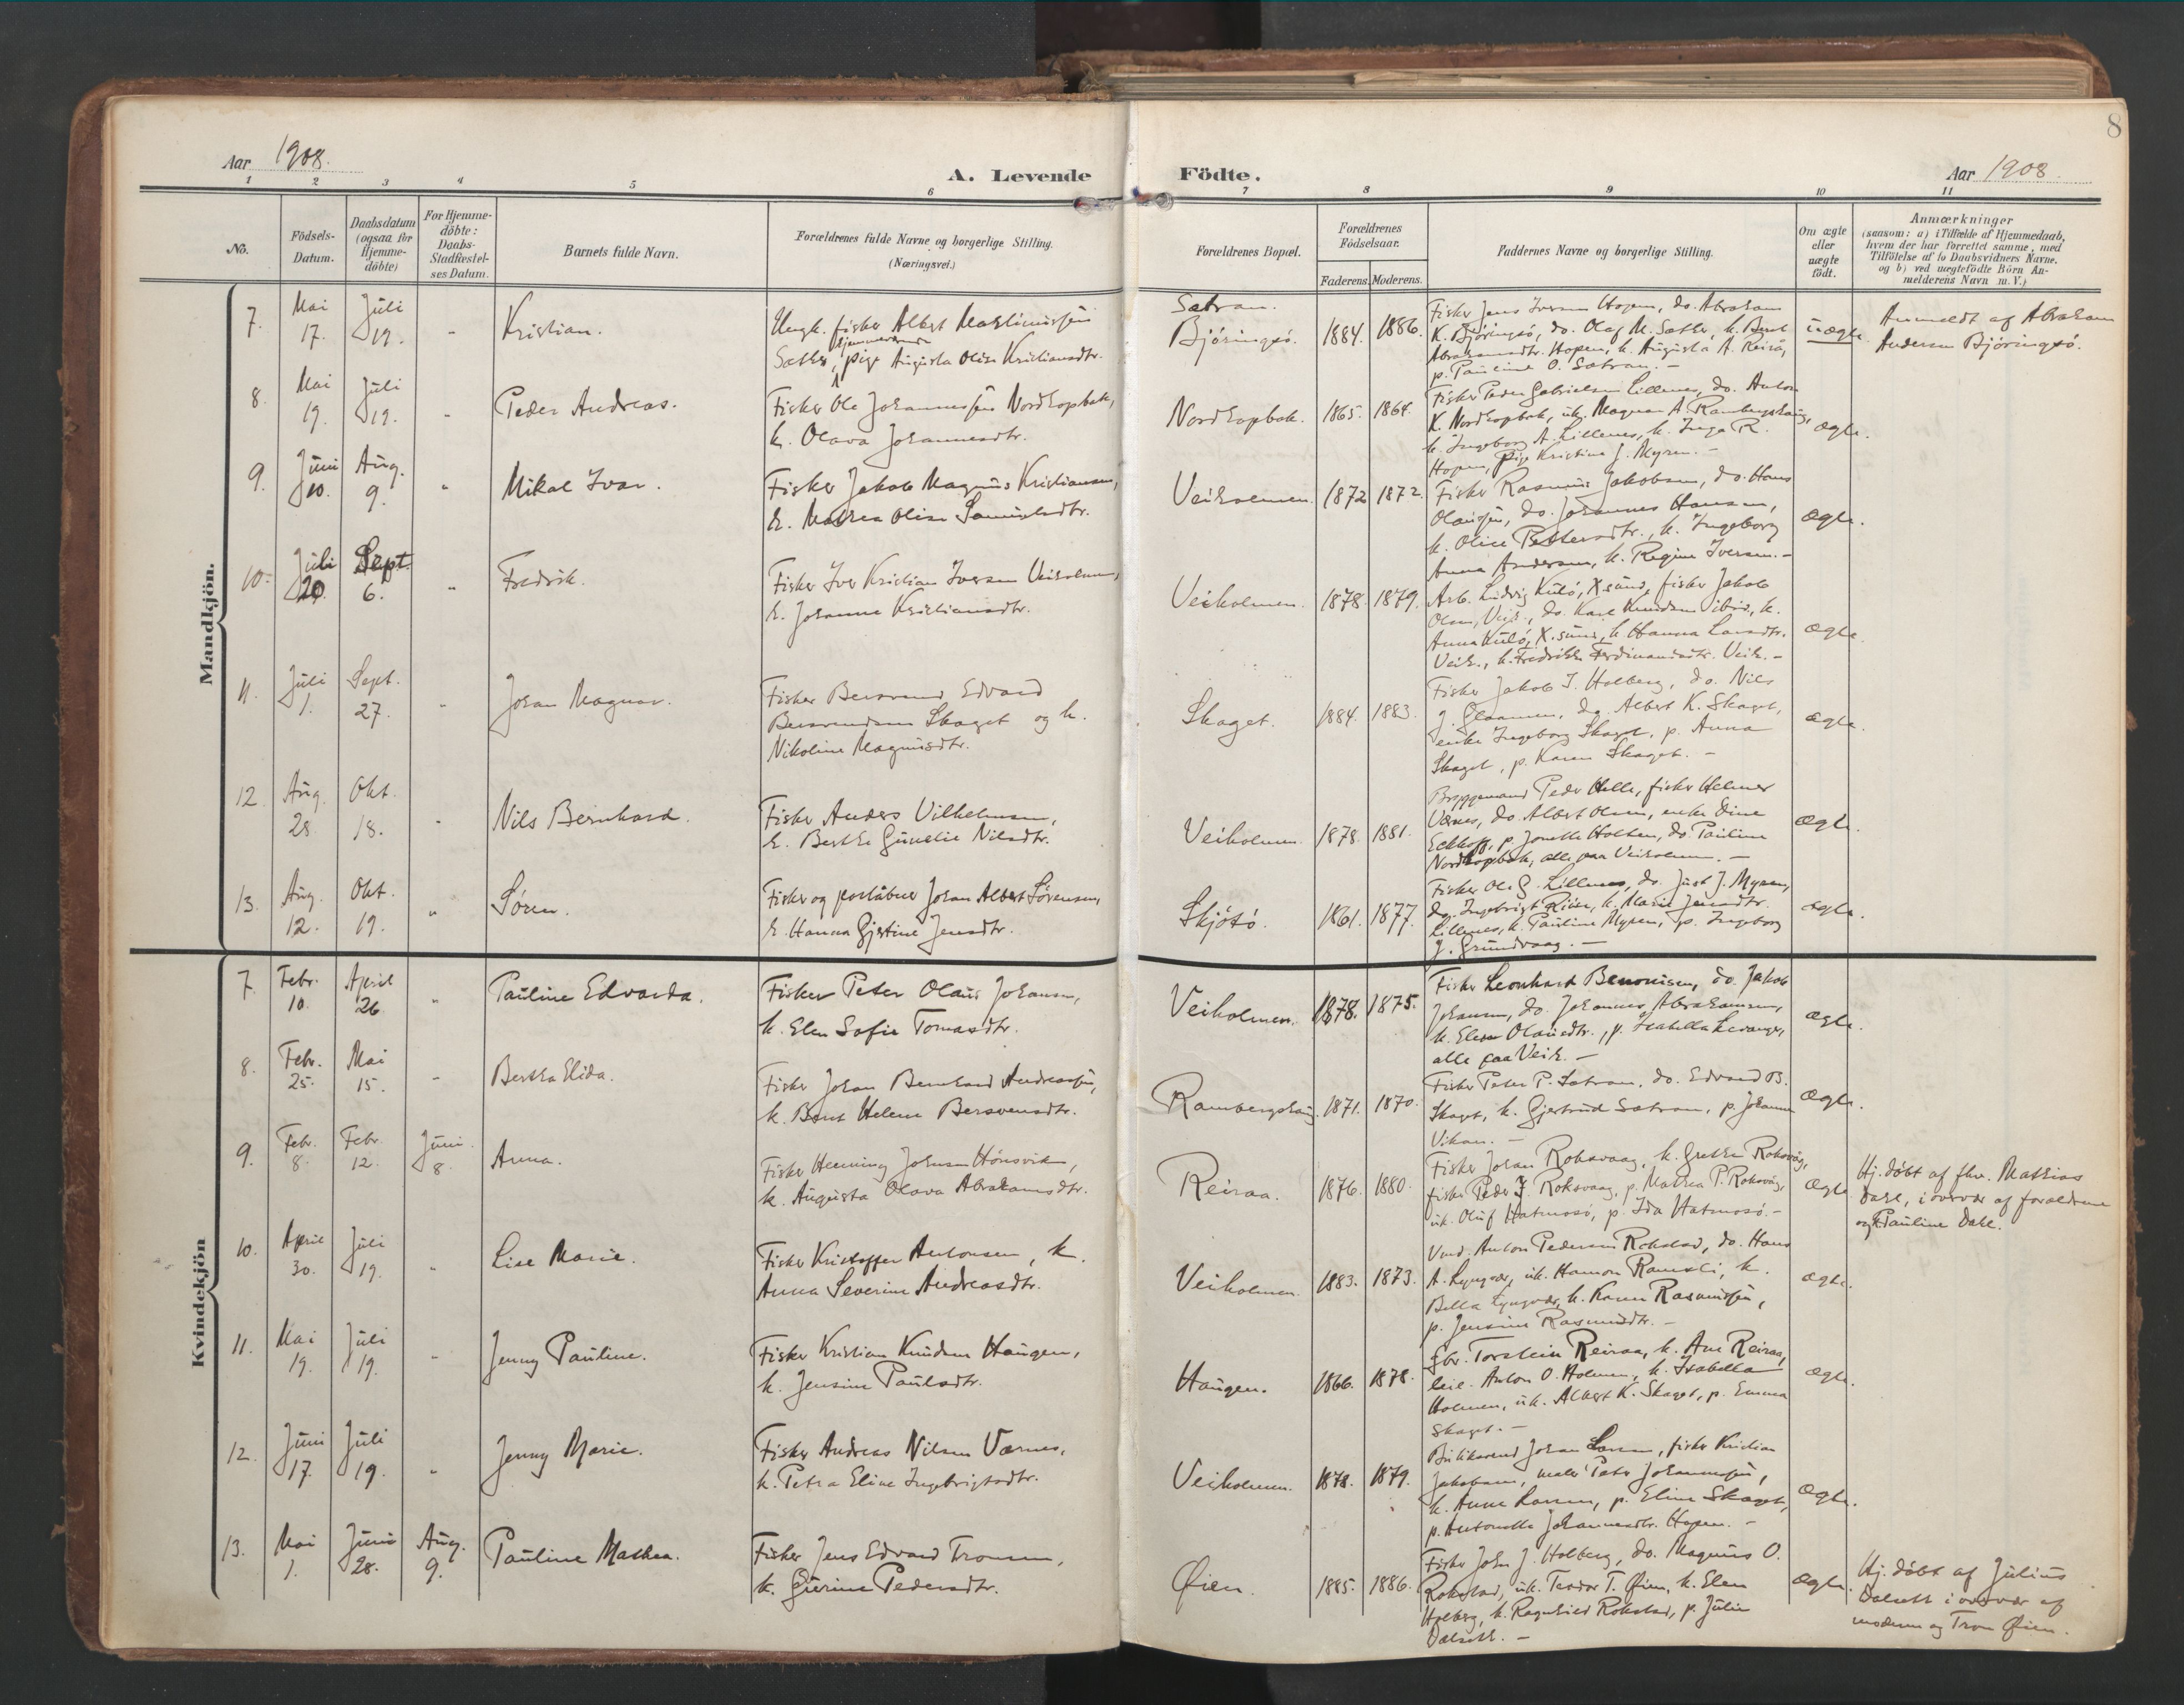 8
Aar 1908.
A. Levende Födte.
Aar 1908.
1 2 3 4 5 6 7 8 9 10 11
No.
Födsels-
Datum.
Daabsdatum
(ogsaa for
Hjemme-
döbte)
For Hjemme-
döbte:
Daabs-
Stadfæstel-
ses Datum.
Barnets fulde Navn.
Forældrenes fulde Navne og borgerlige Stilling.
(Næringsvei.)
Forældrenes Bopæl.
Forældrenes
Födselsaar.
Faderens. Moderens.
Faddernes Navne og borgerlige Stilling.
Om ægte
eller
uægte
födt.
Anmærkninger
(saasom: a) i Tilfælde af Hjemmedaab,
hvem der har forrettet samme, med
Tilföielse af to Daabsvidners Navne.
og b) ved uægtefödte Börn An-
melderens Navn m. V.)
Mandkjön.
7. Mai 17. Juli 19. " Kristian.
Ungk. fisker Albert
hjemmeværende
pige Augusta Olise Kristiansdtr.
Satran.
Björingsö. 1884. 1886.
Fisker Jens Iversen Hopen, do. Abraham
K. Björingsö, do. Olag M. Sather, k. Berit
Abrahamsdtr. Hopen, k. Augusta A. Reirö,
p. Pauline O. Satran. -
uægte
Anmeldt af Abraham
Andersen Björingsö.
8. Mai 19. Juli 19. " Peder Andreas.
Fisker Ole Johannessen Nordhopbak,
k. Olava Johannesdtr.
Nordhopbak. 1865. 1864.
Fisker Peder Gabrielsen Lillenes, do. Anton
K. Nordhopbak, uk. Magnus A. Rambergshaug,
k. Ingeborg A. Lillenes, k. Inga R.
Hopen, pige Kristine J. Myren. -
ægte.
9. Juni 10. Aug. 9. " Mikal Ivar.
Fisker Jakob Magnus Kristiansen,
k. Mathea Olise Samuelsdtr.
Veiholmen. 1872 1872.
Fisker Rasmus Jakobsen, do. Hans
Olaussen, do. Johannes Hansen,
k. Olice Pettersdtr., k. Ingeborg
Anna Andersen, k. Regine Iversen. -
ægte.
10. Juli 20. Sept. 6. " Fredrik.
Fisker Iver Kristian Iversen Veiholmen,
k. Johanna Kristiansdtr.
Veiholmen. 1878. 1879.
Arb. Ludvig Kulö, Xsund, fisker Jakob
Olsen, Veih., do. Karl Knudsen ibid., k.
Anna Kulö, X.sund, k. Hanna Larsdtr.
Veih., k. Fredrikke Ferdinandsdtr. Veih. -
ægte
11. Juli 1. Sept. 27. " Johan Magnar.
Fisker Edvard
Skaget og k.
Nikoline Magnusdtr.
Skaget. 1884. 1883.
Fisker Jakob J. Holberg, do. Nils
J. Glaamen, do. Albert K. Skaget,
enke Ingeborg Skaget, p. Anna
Skaget, p. Karen Skaget. -
ægte.
12. Aug. 28. Okt. 18. " Nils Bernhard.
Fisker Anders Vilhelmsen,
k. Berthe Gunelie Nilsdtr.
Veiholmen. 1878. 1881.
Bryggemand Peder Helle, fisker Helmer
Værnes, do. Albert Olsen, enke Dine
Eckhoff, p. Jonette Holten, do. Pauline
Nordhopbak, alle paa Veiholmen. -
ægte.
13. Aug. 12. Okt. 19. " Sören.
Fisker og postaabner Johan Albert Sörensen,
k. Hanna Gjertine Jensdtr.
Skjötö. 1861. 1877.
Fisker Ole G. Lillenes, do. Just J. Myren,
do. Ingebrigt k. Marie Jensdtr.
Lillenes, k. Pauline Myren, p. Ingeborg
J. Grundvaag. -
ægte.
Kvindekjön
7. Febr. 10. April 26. " Pauline Edvarda.
Fisker Peter Olaus Johansen,
k. Elen Sofie Tomasdtr.
Veiholmen. 1878. 1875.
Fisker Leonhard Benonisen, do. Jakob
Johansen, do. Johannes Abrahamsen,
k. Elena Olausdtr., p. Isabella Levanger,
alle paa Veih. -
ægte.
8. Febr. 25. Mai 15. " Bertha Elida.
Fisker Johan Bernhard Andreassen,
k. Berit Helene Bersvensdtr.
Rambergshaug. 1871. 1870.
Fisker Peter P. Satran, do. Edvard B.
Skaget, k. Gjertrud Satran, p. Johanna
Vikan. -
ægte.
9. Febr. 8. Febr. 12. Juni 8. Anna.
Fisker Henning Johnsen Hönsvik,
k. Augusta Olava Abrahamsdtr.
Reiraa. 1876. 1880.
Fisker Johan Roksvaag, k. Grethe Roksvåg,
fisker Peder J. Roksvaag, p. Mathea P. Roksvåg,
uk. Oluf Hatmosö, p. Ida Hatmosö. -
ægte
Hj. döbt af fhv. Mathias
Dahl, i overvær af forældrene
og Pauline Dahl.
10. April 30. Juli 19. " Lise Marie.
Fisker Kristoffer Antonsen, k.
Anna Severine Andreasdtr.
Veiholmen. 1883. 1873.
Vmd. Anton Pedersen Rokstad, do. Hans
A. Lyngvær, uk. Hamon Ramsli, k.
Bella Lyngvær, k. Karen Rasmussen,
p. Jensine Rasmusdtr. -
ægte.
11. Mai 19. Juli 19. " Jenny Pauline.
Fisker Kristian Knudsen Haugen,
k. Jensine Paulsdtr.
Haugen. 1866. 1878.
gbr. Torstein Reiraa, k. Ane Reiraa,
leil. Anton O. Holmen, k. Isabella
Holmen, uk. Albert K. Skaget, p. Emma
Skaget. -
ægte.
12. Juni 17. Juli 19. " Jenny Marie.
Fisker Andreas Nilsen Værnes,
k. Petra Eline Ingebrigtsdtr.
Veiholmen. 1878. 1879.
Johan Larsen, fisker Kristian
Jakobsen, maler Peter Johannessen,
k. Anna Larsen, p. Eline Skaget,
p. Antonette Johannesdtr. Hopen. -
ægte.
13. Mai 1. Juni 28. Aug. 9. Pauline Mathea.
Fisker Jens Edvard Tronsen,
k. Gurine Pedersdtr.
Öien. 1885. 1886.
Fisker John J. Holberg, do. Magnus O.
Rokstad, uk. Teodor T. Öien, k. Elen
Holberg, k. Ragnhild Rokstad, p. Julie
Dalseth. -
ægte.
Hj. döbt af Julius
Dalseth i overvær af
moderen og Tron Öien.